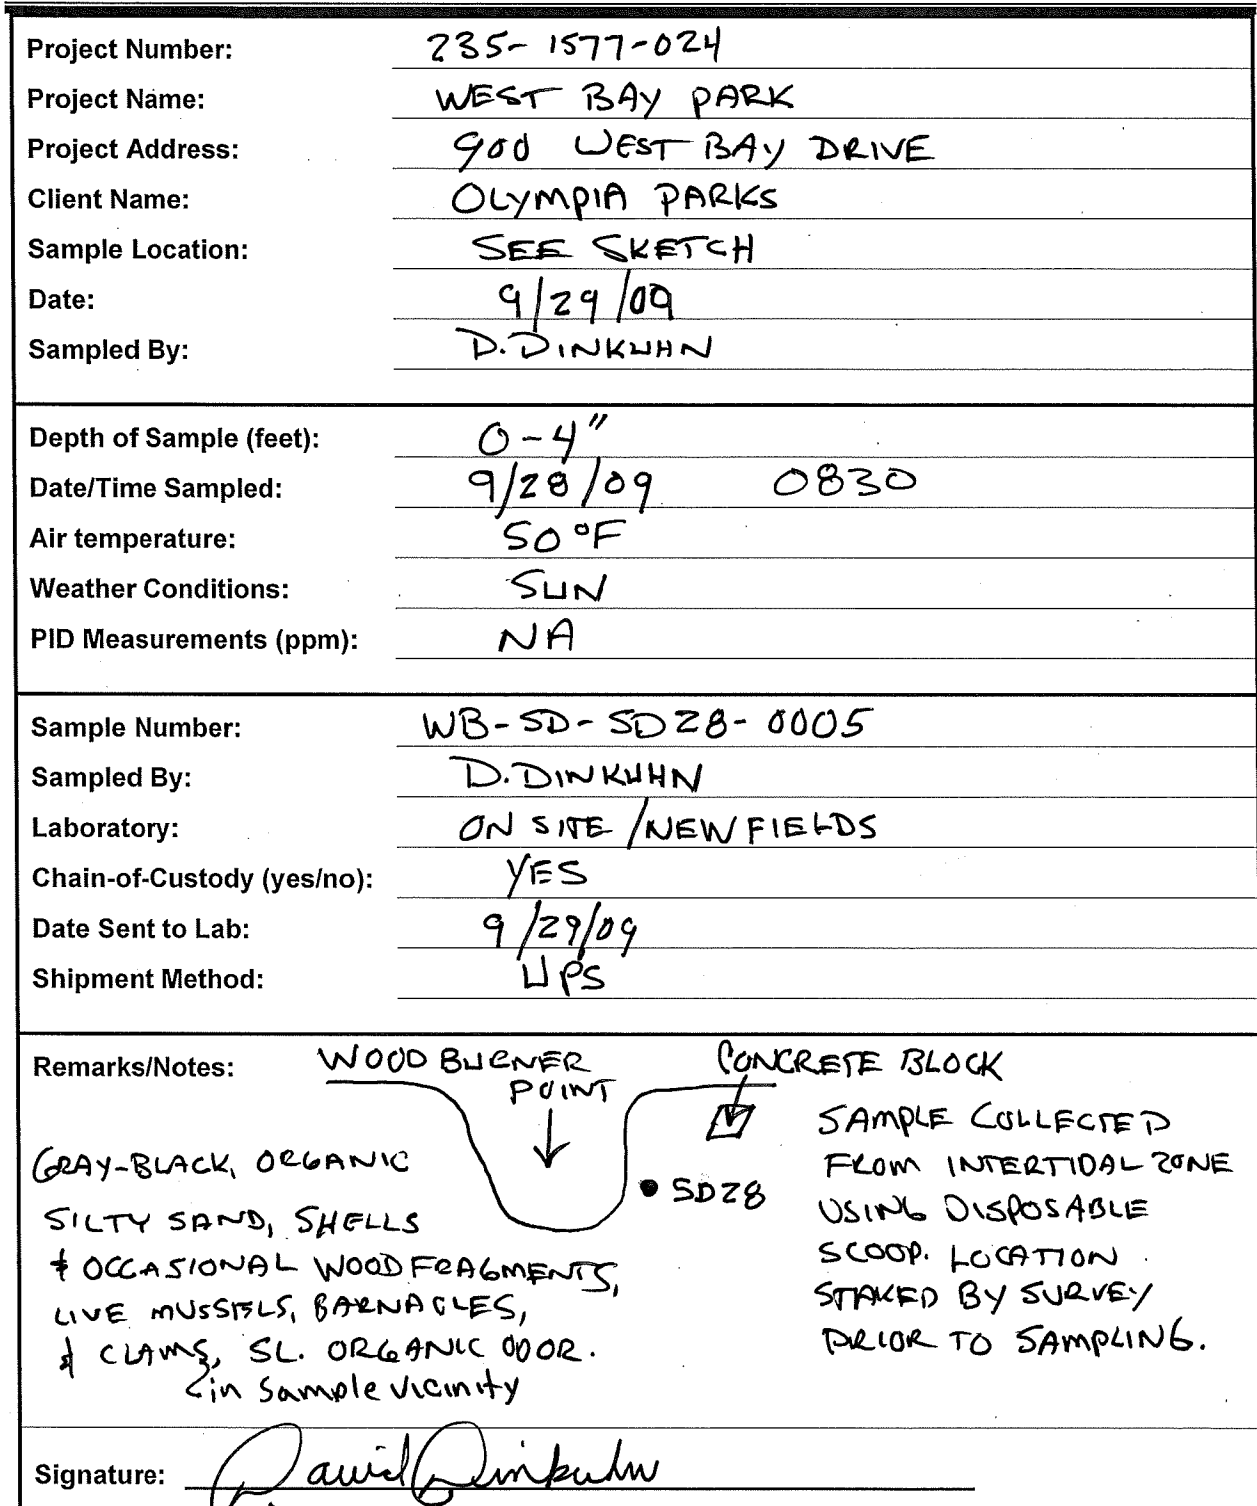 Project Number: 235-1577-024
Project Name: WEST BAY PARK
Project Address: 900 WEST BAY DRIVE
Client Name: OLYMPIA PARKS
Sample Location: SEE SKETCH
Date: 9/29/09
Sampled By: D. DINKUHN
Depth of Sample (feet): 0-4"
Date/Time Sampled: 9/28/09 0830
Air temperature: 50°F
Weather Conditions: SUN
PID Measurements (ppm): NA
Sample Number: WB-SD-SD28-0005
Sampled By: D. DINKUHN
Laboratory: ON SITE/NEWFIELDS
Chain-of-Custody (yes/no): YES
Date Sent to Lab: 9/29/09
Shipment Method: UPS
Remarks/Notes:
WOOD BURNER
POINT
CONCRETE BLOCK
SD28
GRAY-BLACK, ORGANIC
SILTY SAND, SHELLS
& OCCASIONAL WOOD FRAGMENTS,
LIVE MUSSELS, BARNACLES,
& CLAMS, SL. ORGANIC ODOR.
in sample vicinity
SAMPLE COLLECTED
FROM INTERTIDAL ZONE
USING DISPOSABLE
SCOOP. LOCATION
STAKED BY SURVEY
PRIOR TO SAMPLING.
Signature: David Dinkuhn